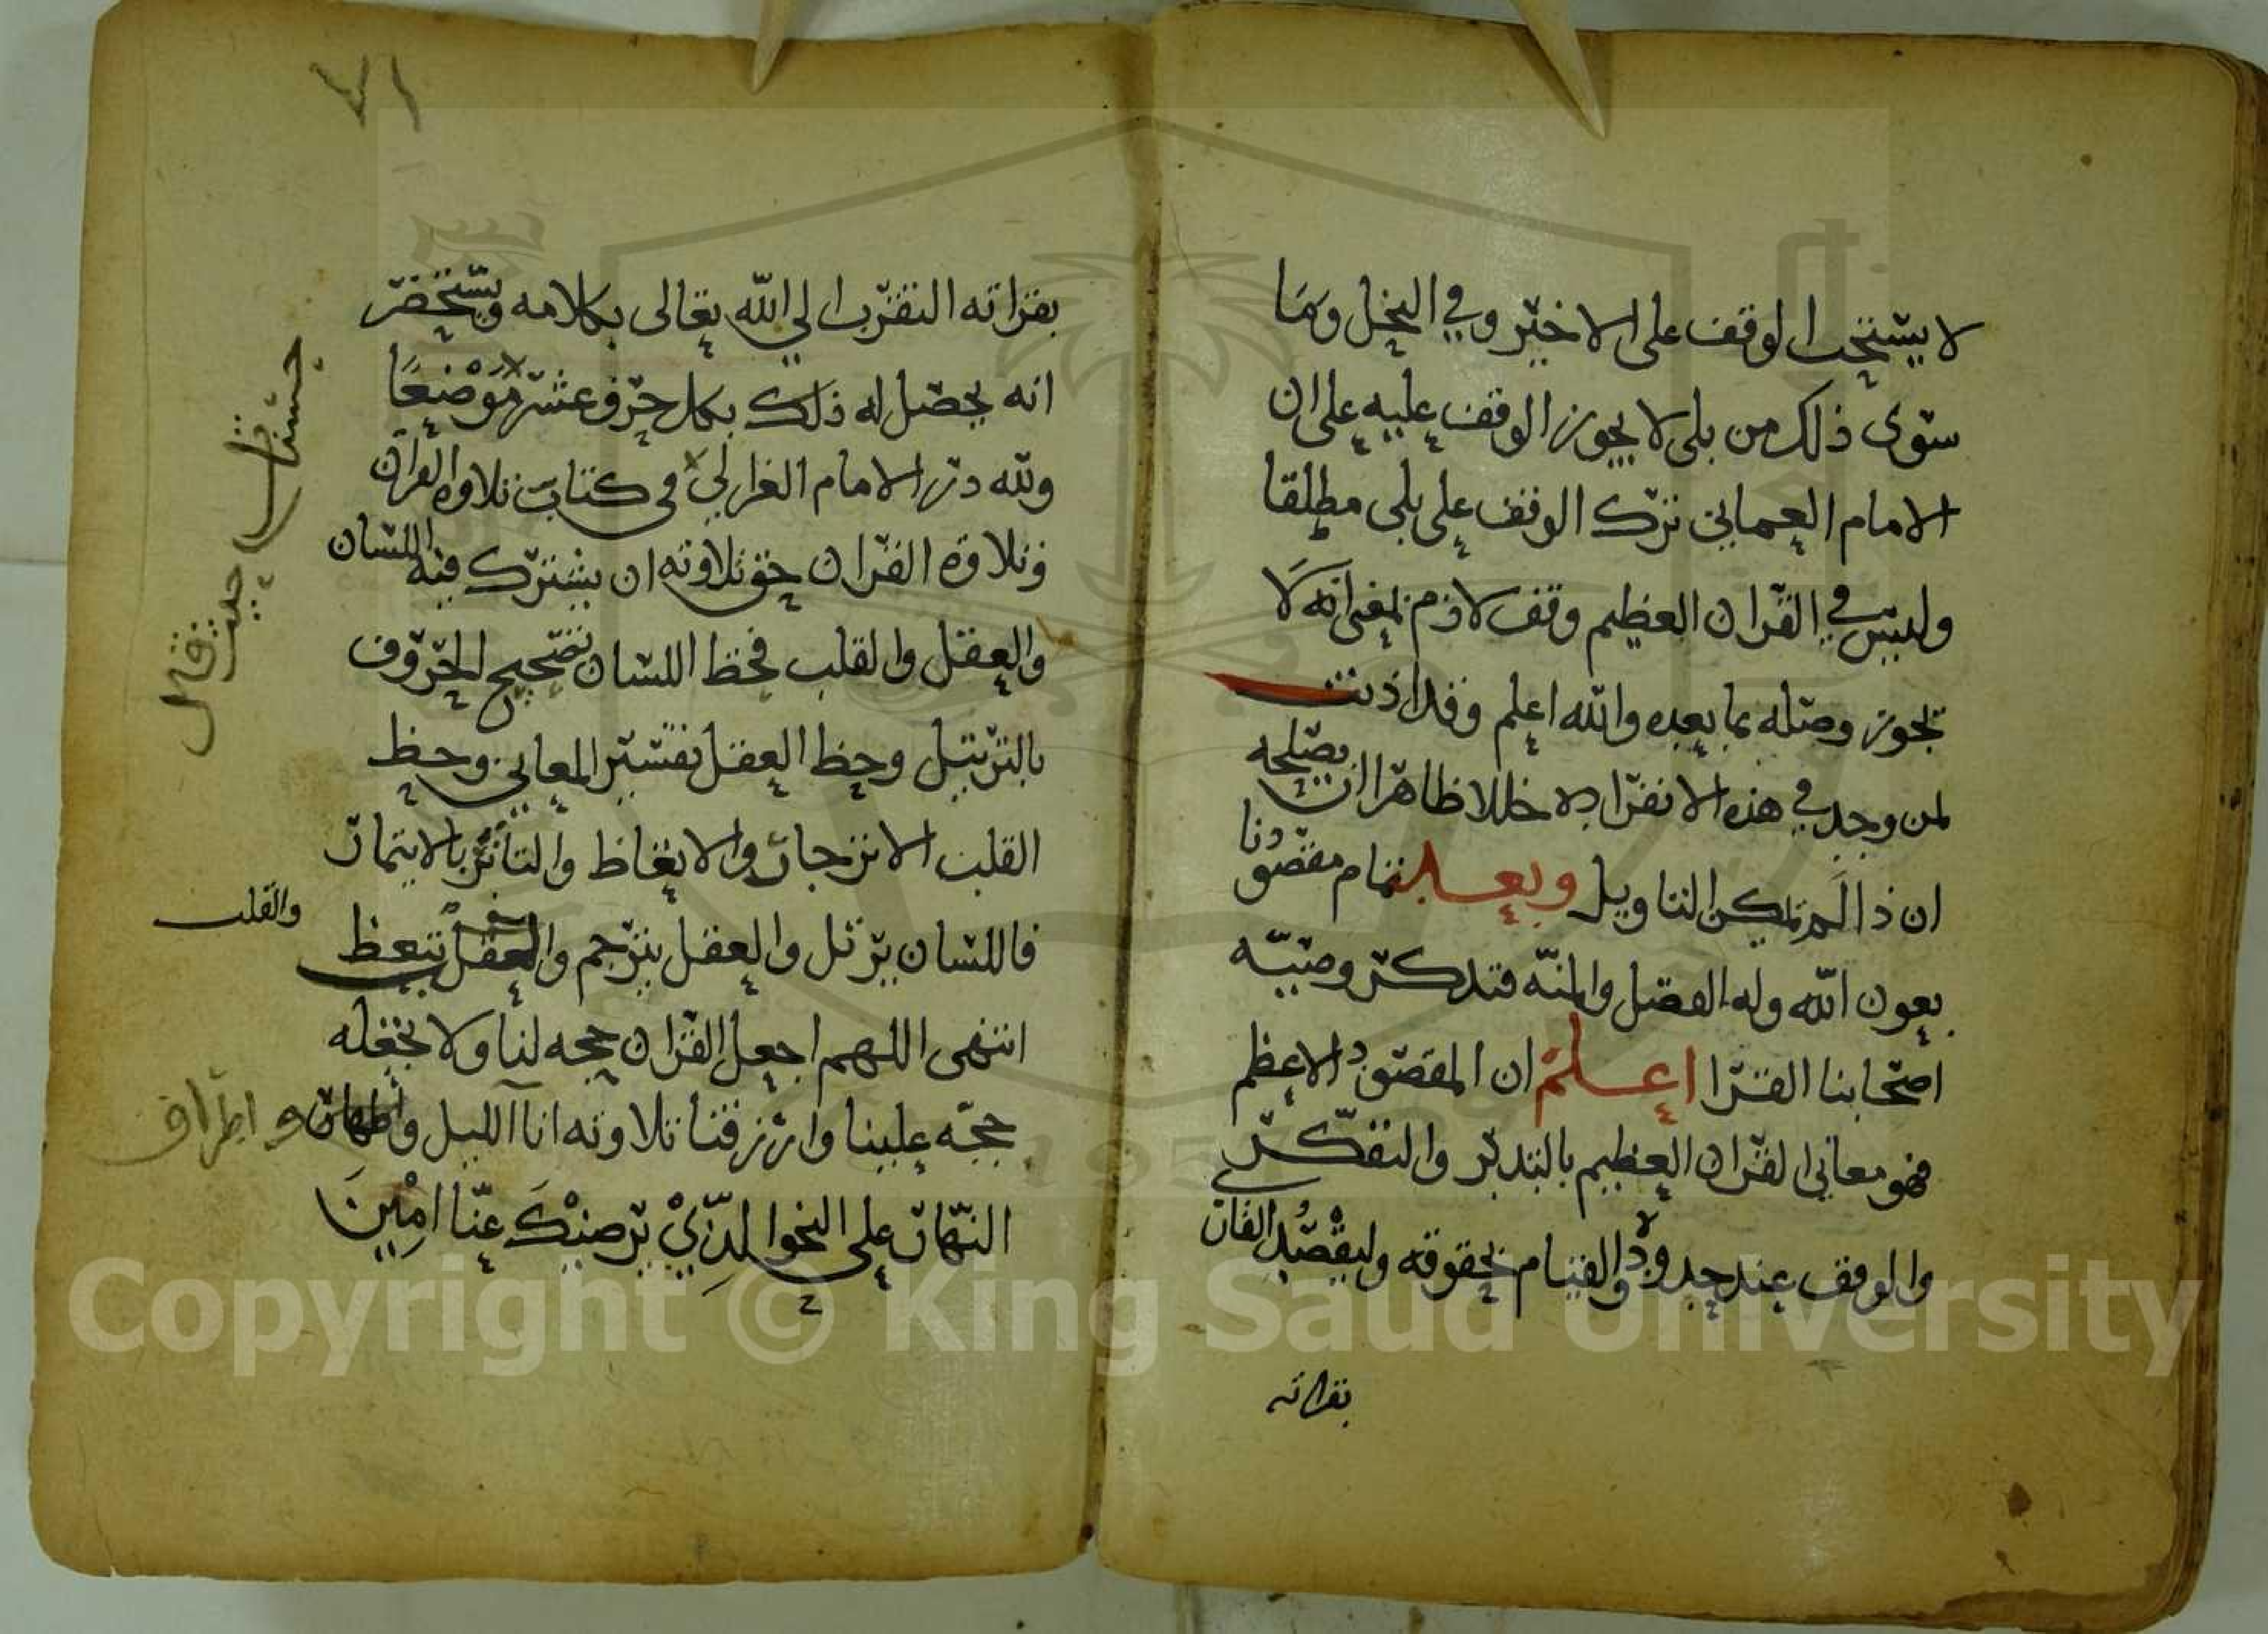 لا يستحب الوقف على الاخير وفي النحل وما
سوى ذلك من بلى لا يجوز الوقف عليه على ان
الامام العماني ترك الوقف على بلى مطلقا
وليس في القران العظيم وقف لازم بمعنى انه لا
يجوز وصله بما بعده والله اعلم وقد اذنت
لمن وجد في هذه الانفراده خللا ظاهرا ان يصلحه
ان ذا لم يمكن التاويل وبعد تمام مقصودنا
بعون الله وله الفضل والمنه فتدكر وصيه
اصحابنا القرا اعلم ان المقصود الاعظم
فهو معاني القران العظيم بالتدبر والتفكر
والوقف عند حدوده والقيام بحقوقه وليقصد القار
بقراته
٧١
بقراته التقرب الي الله تعالى بكلامه ويستحضر
انه يحصل له ذلك بكل حرف عشر موضعا
ولله در الامام الغزالي في كتاب تلاوة القران
وتلاوة القران حق تلاوته ان يشترك فيه اللسان
والعقل والقلب فحظ اللسان تصحيح الحروف
بالترتيل وحظ العقل تفسير المعاني وحظ
القلب الاتزجار والاتعاظ والتاثر بالايتمار
فاللسان يرتل والعقل يترجم والعقل يتعظ
والقلب
انتهى اللهم اجعل القران حجه لنا ولا تجعله
حجه علينا وارزقنا تلاوته اناآ الليل واطهار
و اطراف
النهار على النحو الذي يرضيك عنا امين
حسنات
حيث قال
Copyright © King Saud University
195